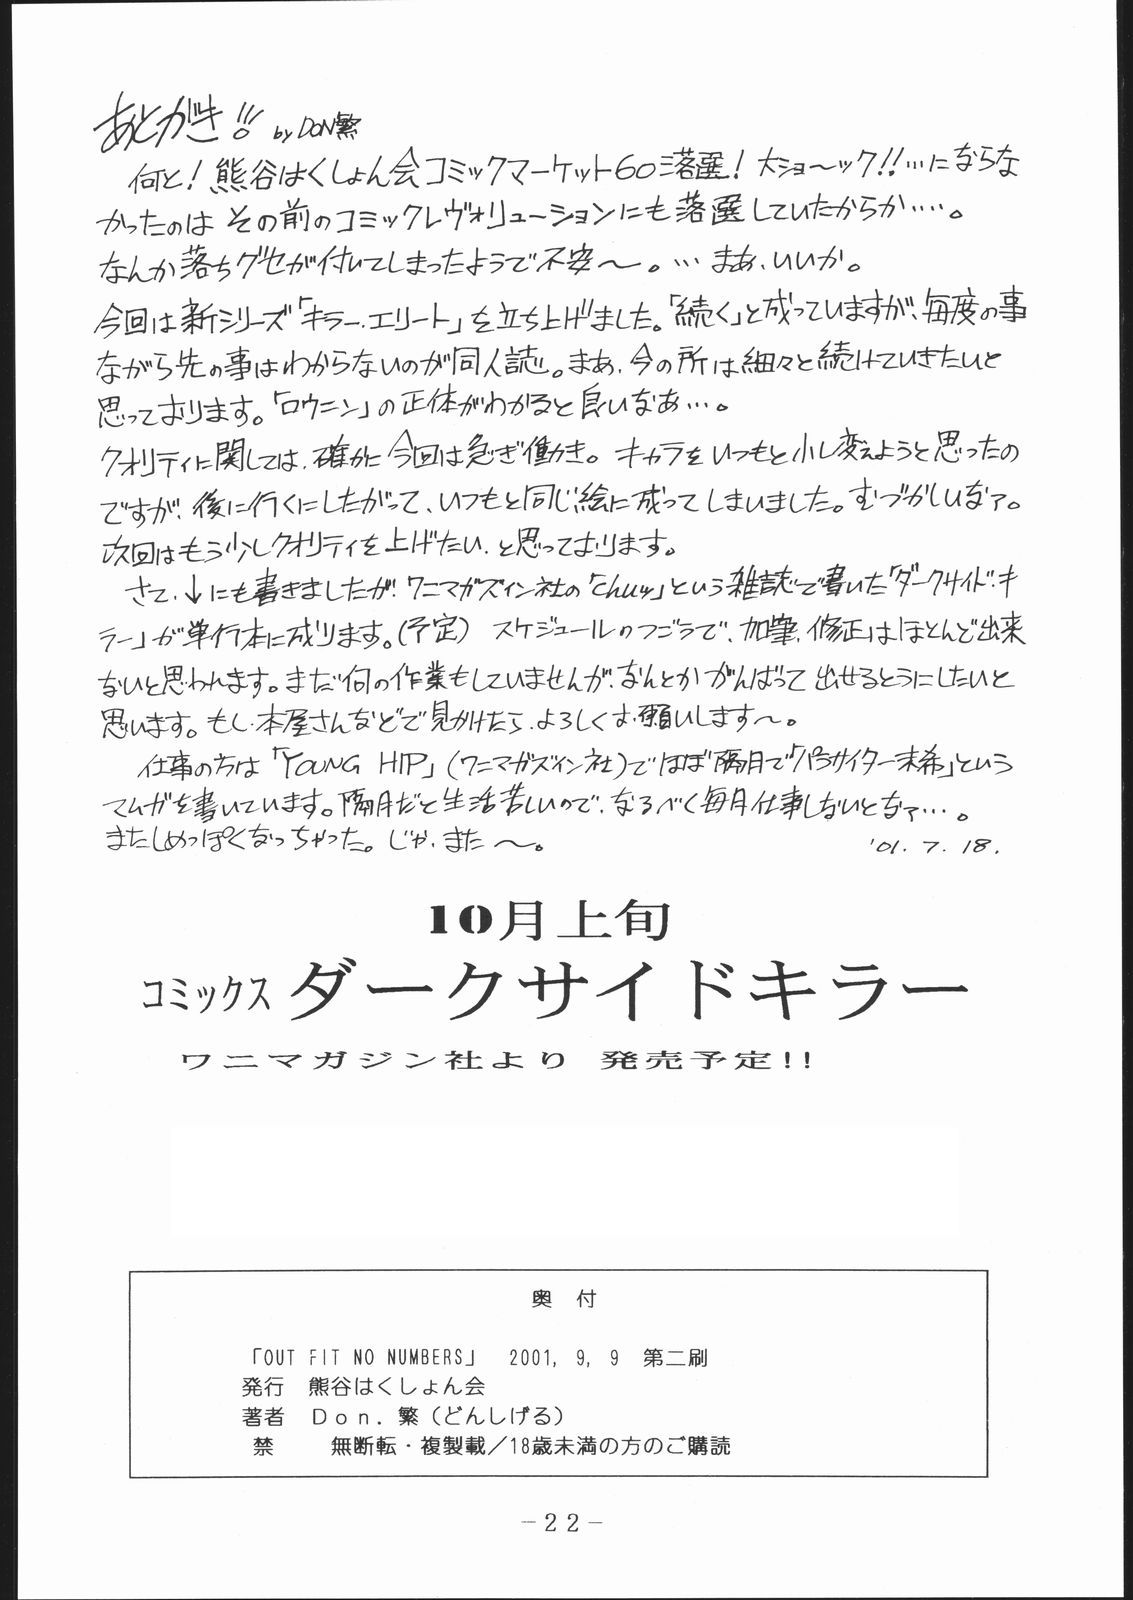 あとがき!! by DON繁
何と!熊谷はくしょん会コミックマーケット60落選!大ショ〜ック!!…にならな
かったのは その前のコミックレヴォリューションにも落選していたからか…‥。
なんか落ちグセが付いてしまったようで不安〜。… まあ、いいか。
今回は新シリーズ「キラー・エリート」を立ち上げました。「続く」と成っていますが、毎度の事
ながら先の事はわからないのが同人誌。まあ、今の所は細々と続けていきたいと
思っております。「ロウニン」の正体がわかると良いなあ…。
クオリティに関しては、確かに今回は急ぎ働き。キャラをいつもと少し変えようと思ったの
ですが、後に行くにしたがって、いつもと同じ絵に成ってしまいました。むづかしいなァ。
次回はもう少しクオリティを上げたい、と思っております。
さて、↓にも書きましたが、ワニマガズィン社の「chuッ」という雑誌で書いた「ダークサイド・キ
ラー」が単行本に成ります。(予定) スケジュールのつごうで、加筆、修正はほとんど出来
ないと思われます。まだ何の作業もしていませんが、なんとかがんばって出せるとうにしたいと
思います。もし、本屋さんなどで見かけたら、よろしくお願いします〜。
仕事の方は「YOUNG HIP」(ワニマガズィン社)でほぼ隔月で「パラサイター未希」という
マムガを書いています。隔月だと生活苦しいので、なるべく毎月仕事しないとなァ…。
またしめっぽくなっちゃった。じゃ、また 〜。 '01. 7. 18.
10月上旬
コミックス ダークサイドキラー
ワニマガジン社より 発売予定!!
奥 付
「OUT FIT NO NUMBERS」 2001, 9, 9 第二刷
発行 熊谷はくしょん会
著者 Don. 繁(どんしげる)
禁 無断転・複製載/18歳未満の方のご購読
-22-